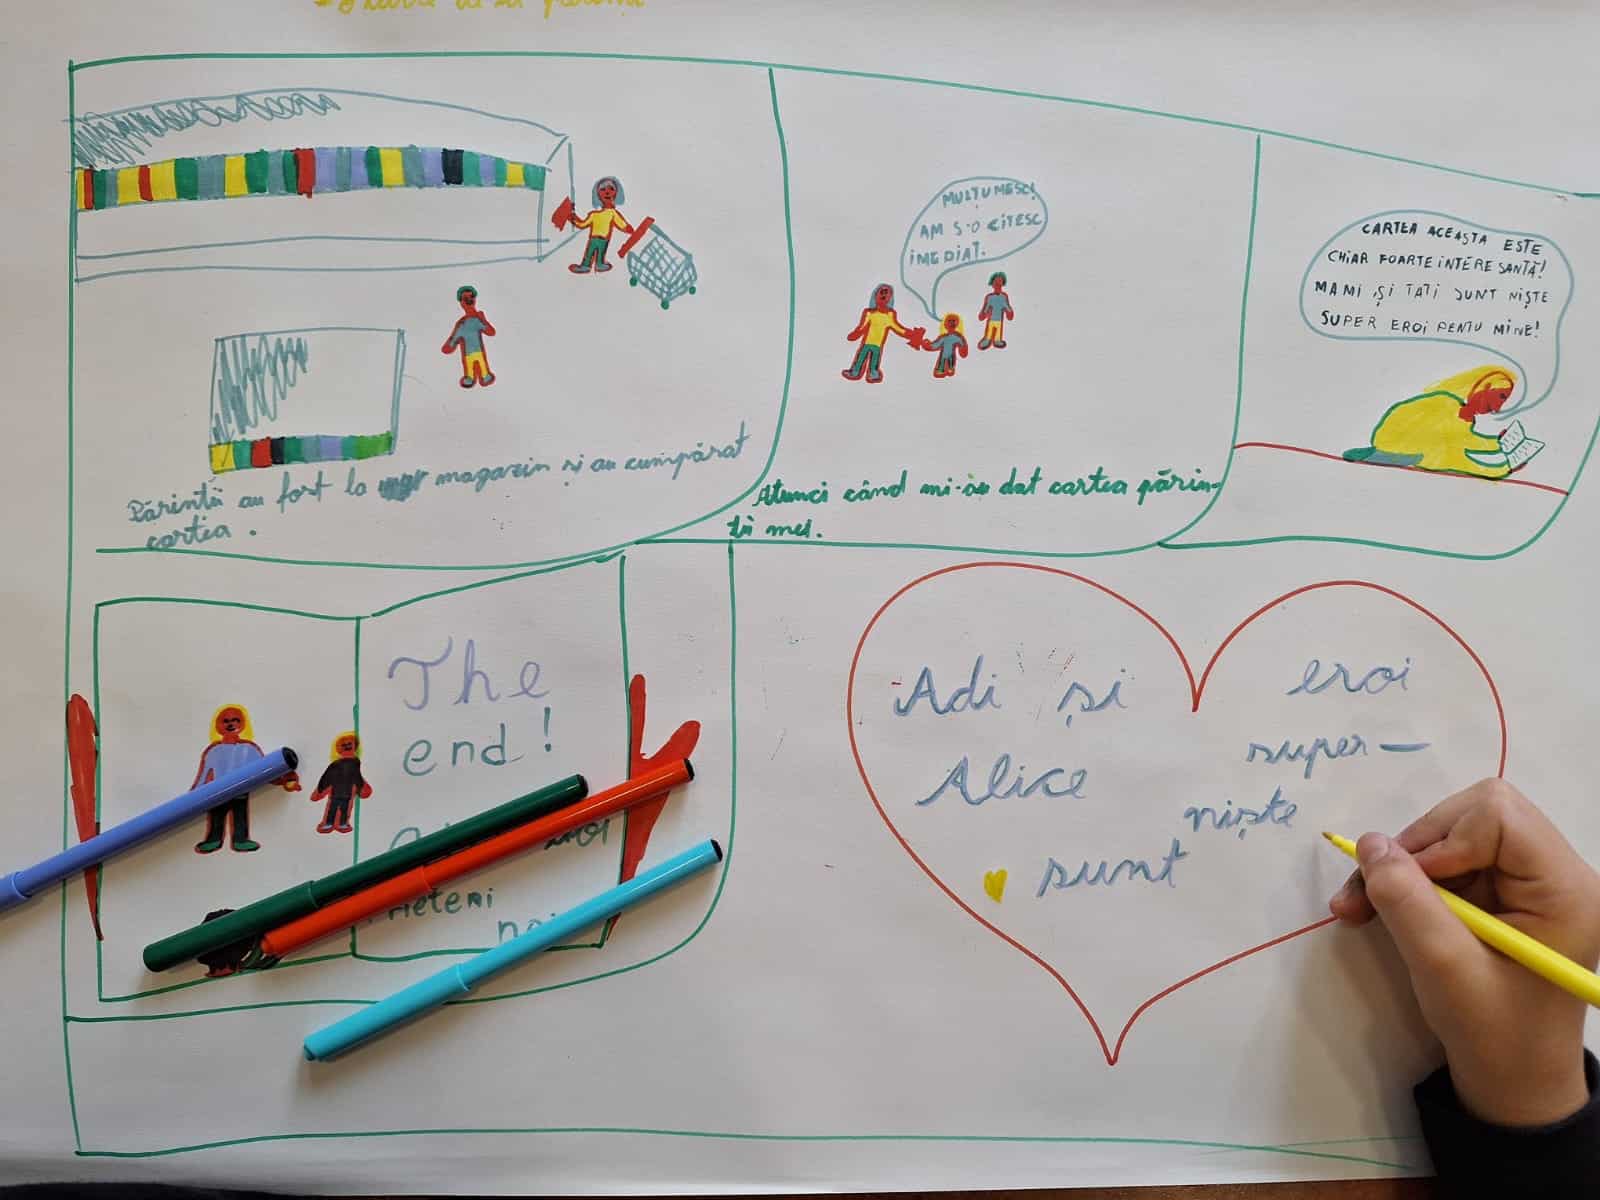 Părintii au fost la magazin și au cumpărat
cartea.
MULȚUMESC!
AM S-O CITESC
IMEDIAT.
Atunci când mi-au dat cartea părin-
tii mei.
CARTEA ACEASTA ESTE
CHIAR FOARTE INTERESANTĂ!
MAMI ȘI TATI SUNT NIȘTE
SUPER EROI PENTU MINE!
The
end!
Adi și
Alice
sunt
niște
super-
eroi